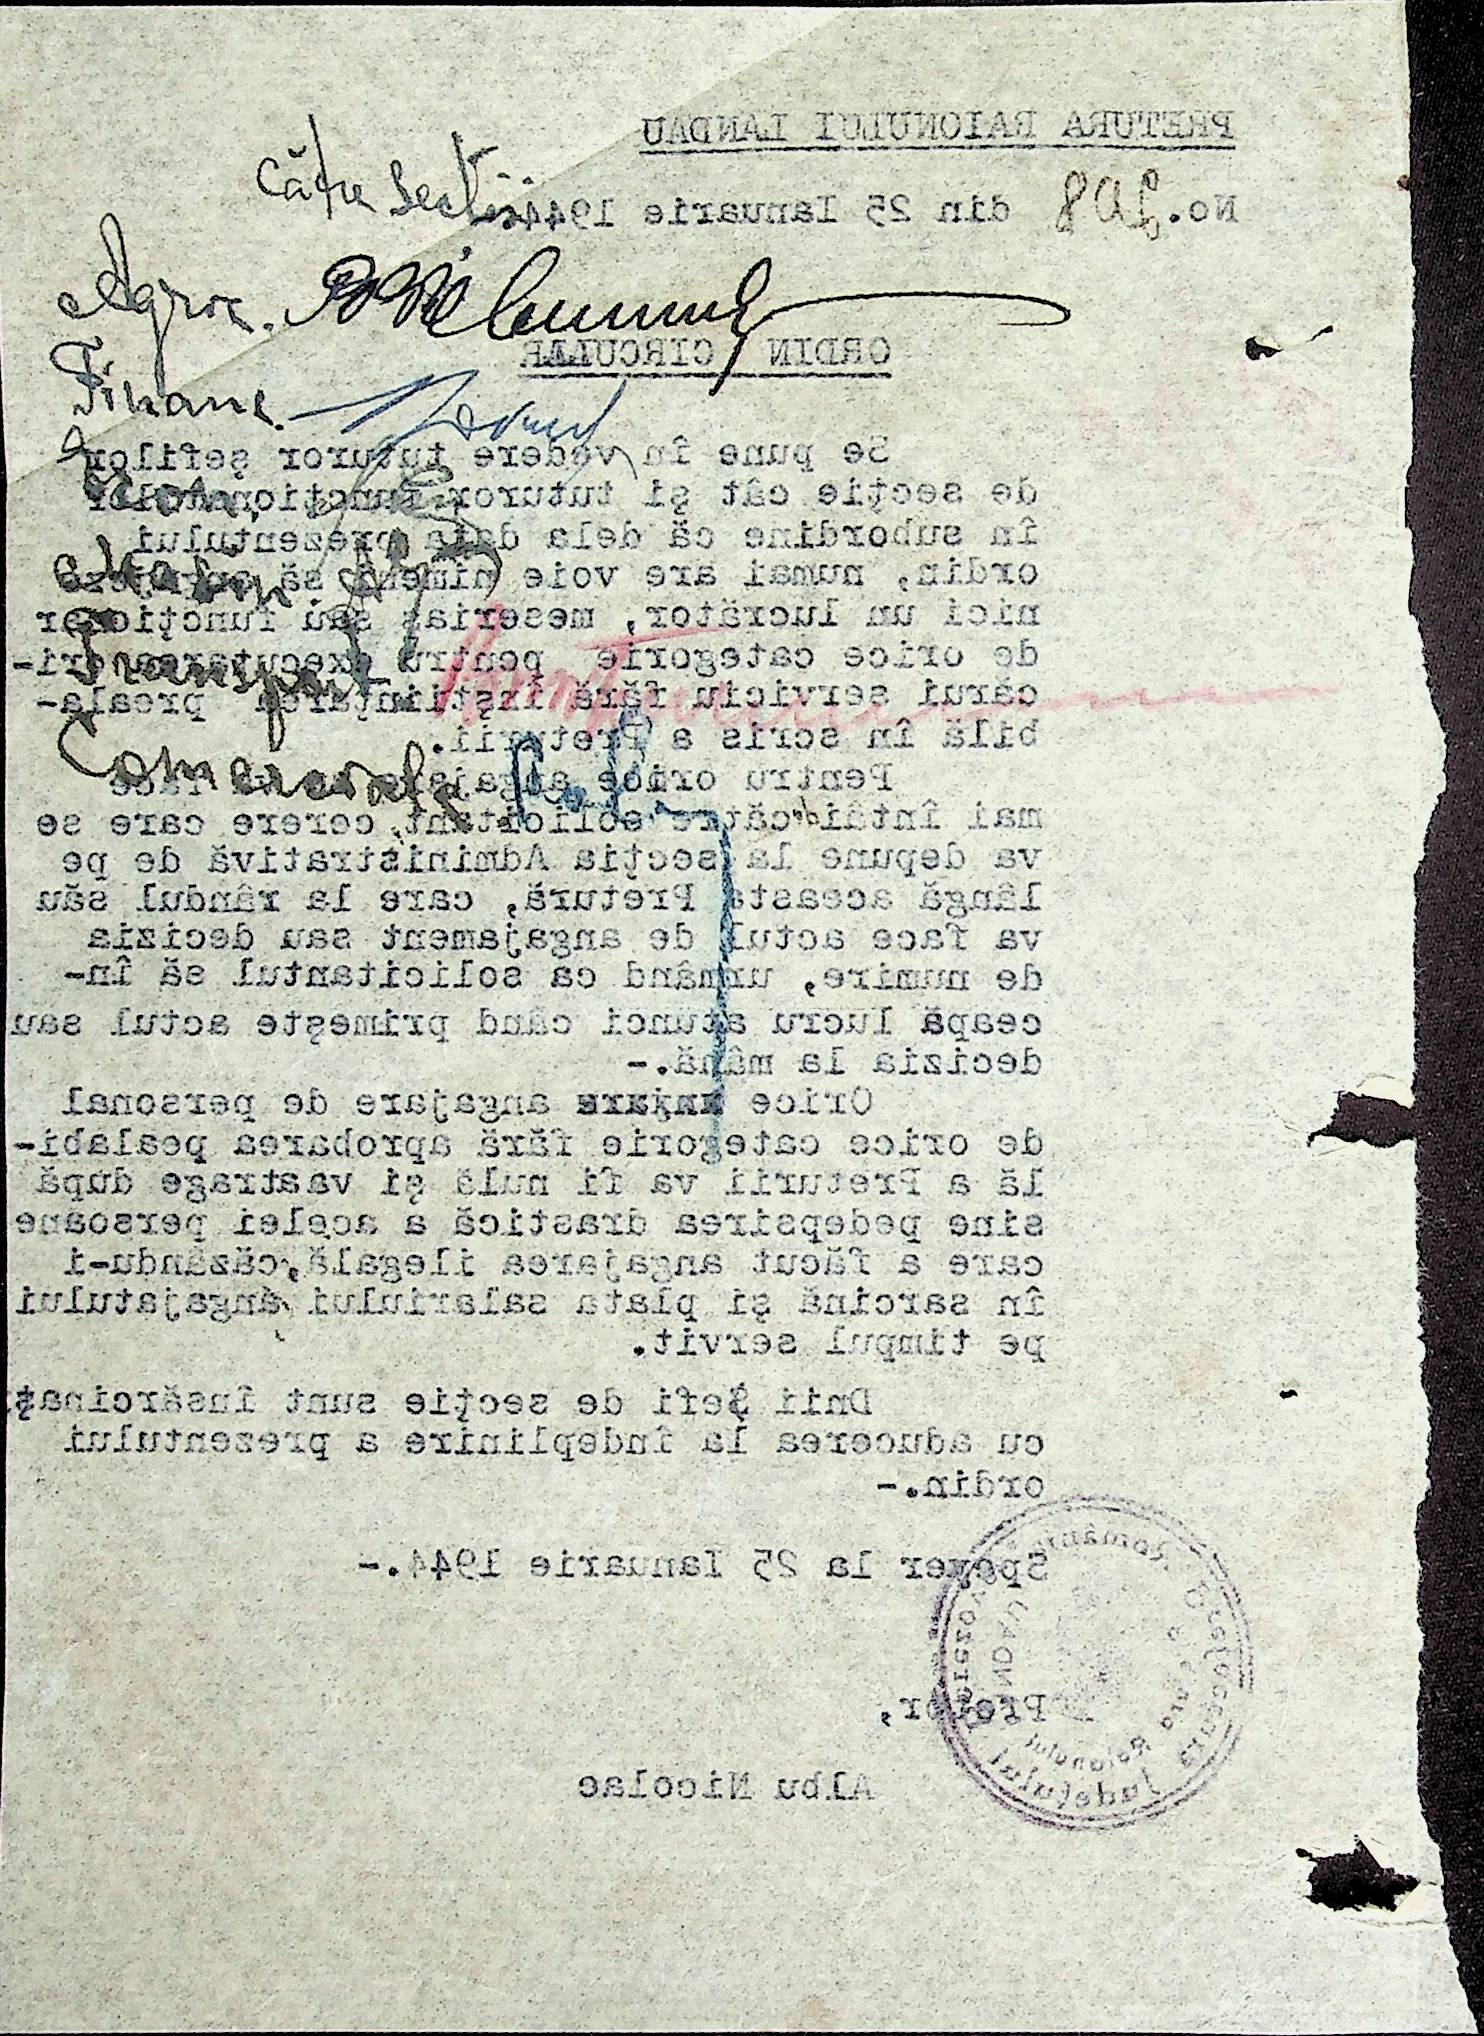 PRETURA RAIONULUI LANDAU
Către Secții
No. din 25 Ianuarie 1944.-
Agric.
ORDIN CIRCULAR
Financ.
Se pune în vedere tuturor șefilor
de secție cât și tuturor funcționarilor
în subordine că dela data prezentului
ordin, numai are voie nimeni să angajeze
nici un lucrător, meseriaș sau funcționar
Transport
de orice categorie pentru executarea ori-
cărui serviciu fără înștiințarea preala-
bilă în scris a Preturii.
Comercială
Pentru orice angajare se va face
mai întâi către solicitant, cerere care se
va depune la secția Administrativă de pe
lângă această Pretură, care la rândul său
va face actul de angajament sau decizia
de numire, urmând ca solicitantul să în-
ceapă lucru atunci când primește actul sau
decizia la mână.-
Orice angajare de personal
de orice categorie fără aprobarea pealabi-
lă a Preturii va fi nulă și vaatrage după
sine pedepsirea drastică a acelei persoane
care a făcut angajarea ilegală, căzându-i
în sarcină și plata salariului angajatului
pe timpul servit.
Dnii Șefi de secție sunt însărcinați
cu aducerea la îndeplinire a prezentului
ordin.-
Speyer la 25 Ianuarie 1944.-
Pretor,
Albu Nicolae
România
Prefectura Județului Berezovca
Pretura Raionului LANDAU